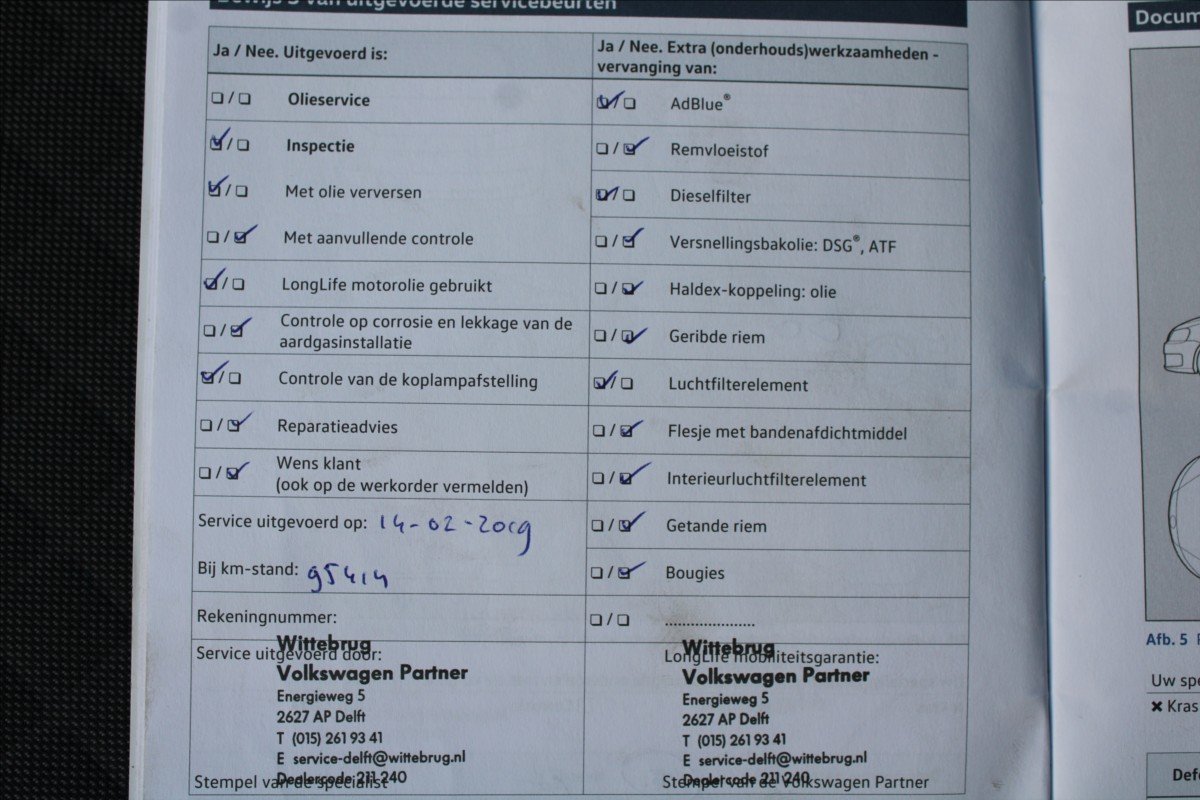 Bewijs 3 van uitgevoerde servicebeurten
Ja / Nee. Uitgevoerd is:
Olieservice
Inspectie
Met olie verversen
Met aanvullende controle
LongLife motorolie gebruikt
Controle op corrosie en lekkage van de
aardgasinstallatie
Controle van de koplampafstelling
Reparatieadvies
Wens klant
(ook op de werkorder vermelden)
Service uitgevoerd op: 14-02-2019
Bij km-stand: 95414
Rekeningnummer:
Service uitgevoerd door:
Wittebrug
Volkswagen Partner
Energieweg 5
2627 AP Delft
T (015) 261 93 41
E service-delft@wittebrug.nl
Dealercode 211 240
Stempel van de specialist
Ja / Nee. Extra (onderhouds)werkzaamheden -
vervanging van:
AdBlue®
Remvloeistof
Dieselfilter
Versnellingsbakolie: DSG®, ATF
Haldex-koppeling: olie
Geribde riem
Luchtfilterelement
Flesje met bandenafdichtmiddel
Interieurluchtfilterelement
Getande riem
Bougies
.....................
LongLife mobiliteitsgarantie:
Wittebrug
Volkswagen Partner
Energieweg 5
2627 AP Delft
T (015) 261 93 41
E service-delft@wittebrug.nl
Dealercode 211 240
Stempel van de Volkswagen Partner
Docum
Afb. 5
Uw spe
✖ Kras
Defe